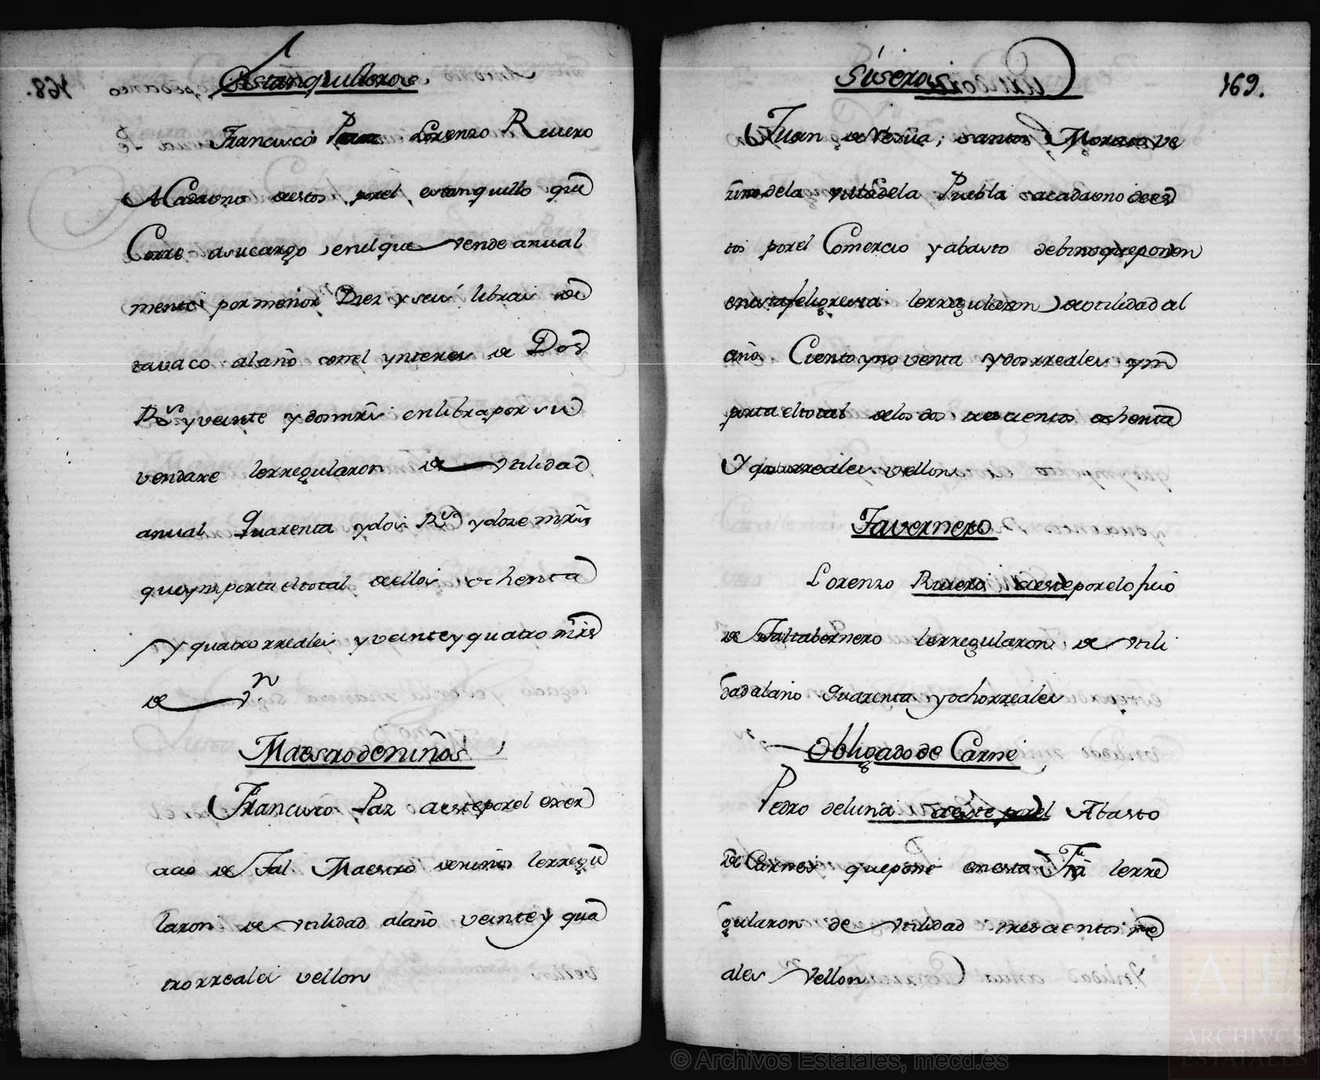 Estanquilleros
Francisco Paz Lorenzo Rivero
A Cada uno destos porel estanquillo que
Corre asucargo, enelque vende anual
mente pormenor Diez y seis libras de
tavaco alaño conel ynteres de Dos
Rs y veinte y dos mrs en libra por su
vendaxe lerregularon de utilidad
anual quarenta ydos Rs ydoze mrs
queymporta eltotal dellos ochenta
y quatro rreales y veinte y quatro mrs
de vn
Maestro de niños
Francisco Paz aesteporel exer
cicio de Tal Maestro deniños lerregu
laron de utilidad alaño veinte y qua
tro rreales vellon
169.
Juan de ; santos
dela villa dela Puebla acadauno dees
tos porel Comercio yabasto que ponen
enestafeligresia lerregularon de utilidad al
año Ciento y noventa ydos rreales ym
porta eltotal delos dos trescientos ochenta
y quatro rreales vellon
Tavernero
Lorenzo Rivero aeste porelofizio
de Taltabernero lerregularon de utili
dad alaño quarenta yochorreales
Obligado de Carne
Pedro deluna aeste porel Abasto
de Carnes quepone enesta Fra lerre
gularon de utilidad trescientos rre
ales Vellon
© Archivos Estatales, mecd.es
AE
ARCHIVOS
ESTATALES